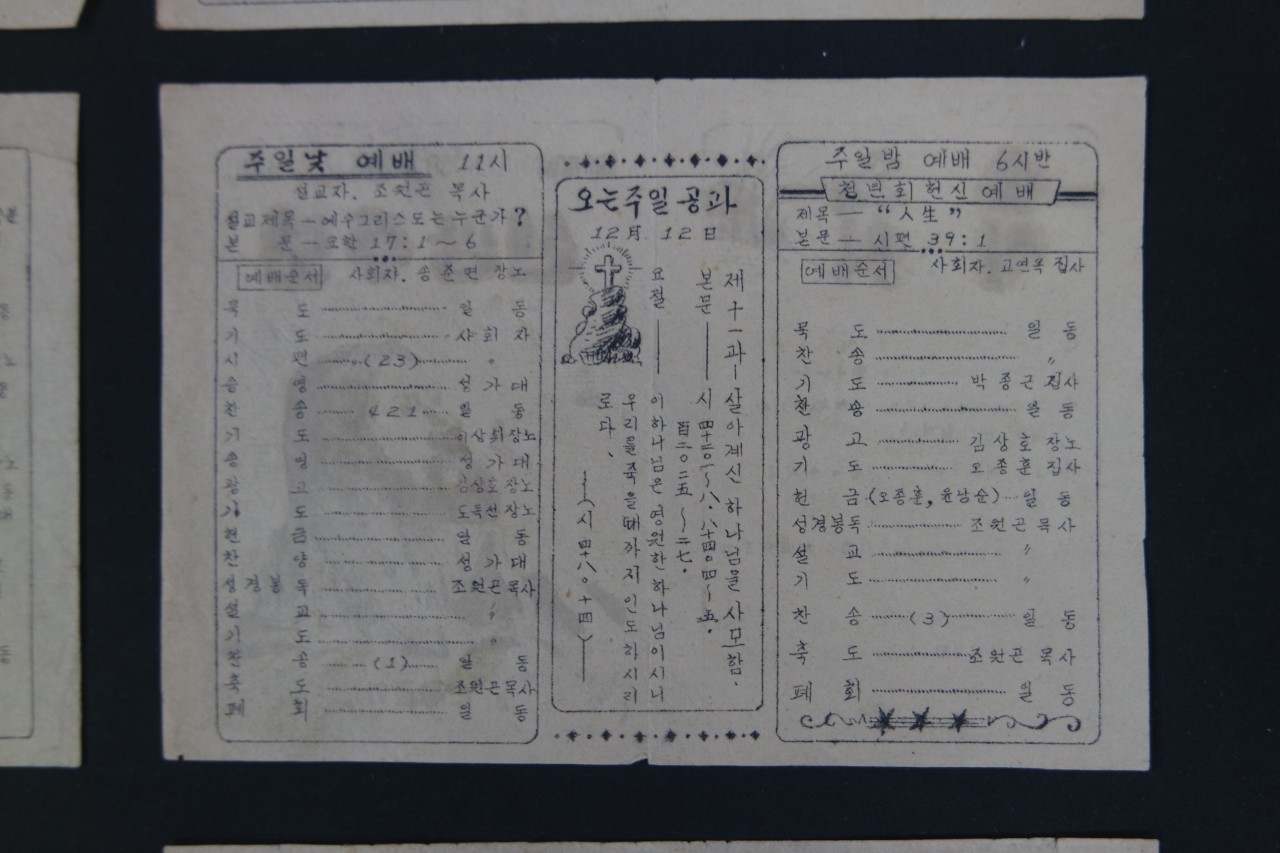 주일낮 예배 11시
설교자. 조원곤 목사
설교제목 — 예수그리스도는누군가?
본 문 — 요한 17:1~6
예배순서 사회자. 송준면 장노
묵 도 일 동
기 도 사회자
시 편 (23) 〃
송 영 성가대
찬 송 421 일 동
기 도 장노
송 영 성가대
광 고 김상호 장노
기 도 도득선 장노
헌 금 일 동
찬 양 성가대
성경봉독 조원곤목사
설 교 〃
기 도 〃
찬 송 (1) 일 동
축 도 조원곤목사
폐 회 일 동
오는주일공과
12月 12日
제十一과—살아계신 하나님을 사모함.
본문 — 시
요절 — 이하나님은 영원한하나님이시니
우리를죽을때까지 인도하시리
로다.
—(시四十八○十四)—
주일밤 예배 6시반
청년회헌신예배
제목 — “人生”
본문 — 시편 39:1
예배순서 사회자. 고연옥 집사
묵 도 일 동
찬 송 〃
기 도 박종근 집사
찬 송 일 동
광 고 김상호 장노
기 도 오종훈집사
헌 금 (오종훈, 윤남순) 일 동
성경봉독 조원곤 목사
설 교 〃
기 도 〃
찬 송 (3) 일 동
축 도 조원곤 목사
폐 회 일 동